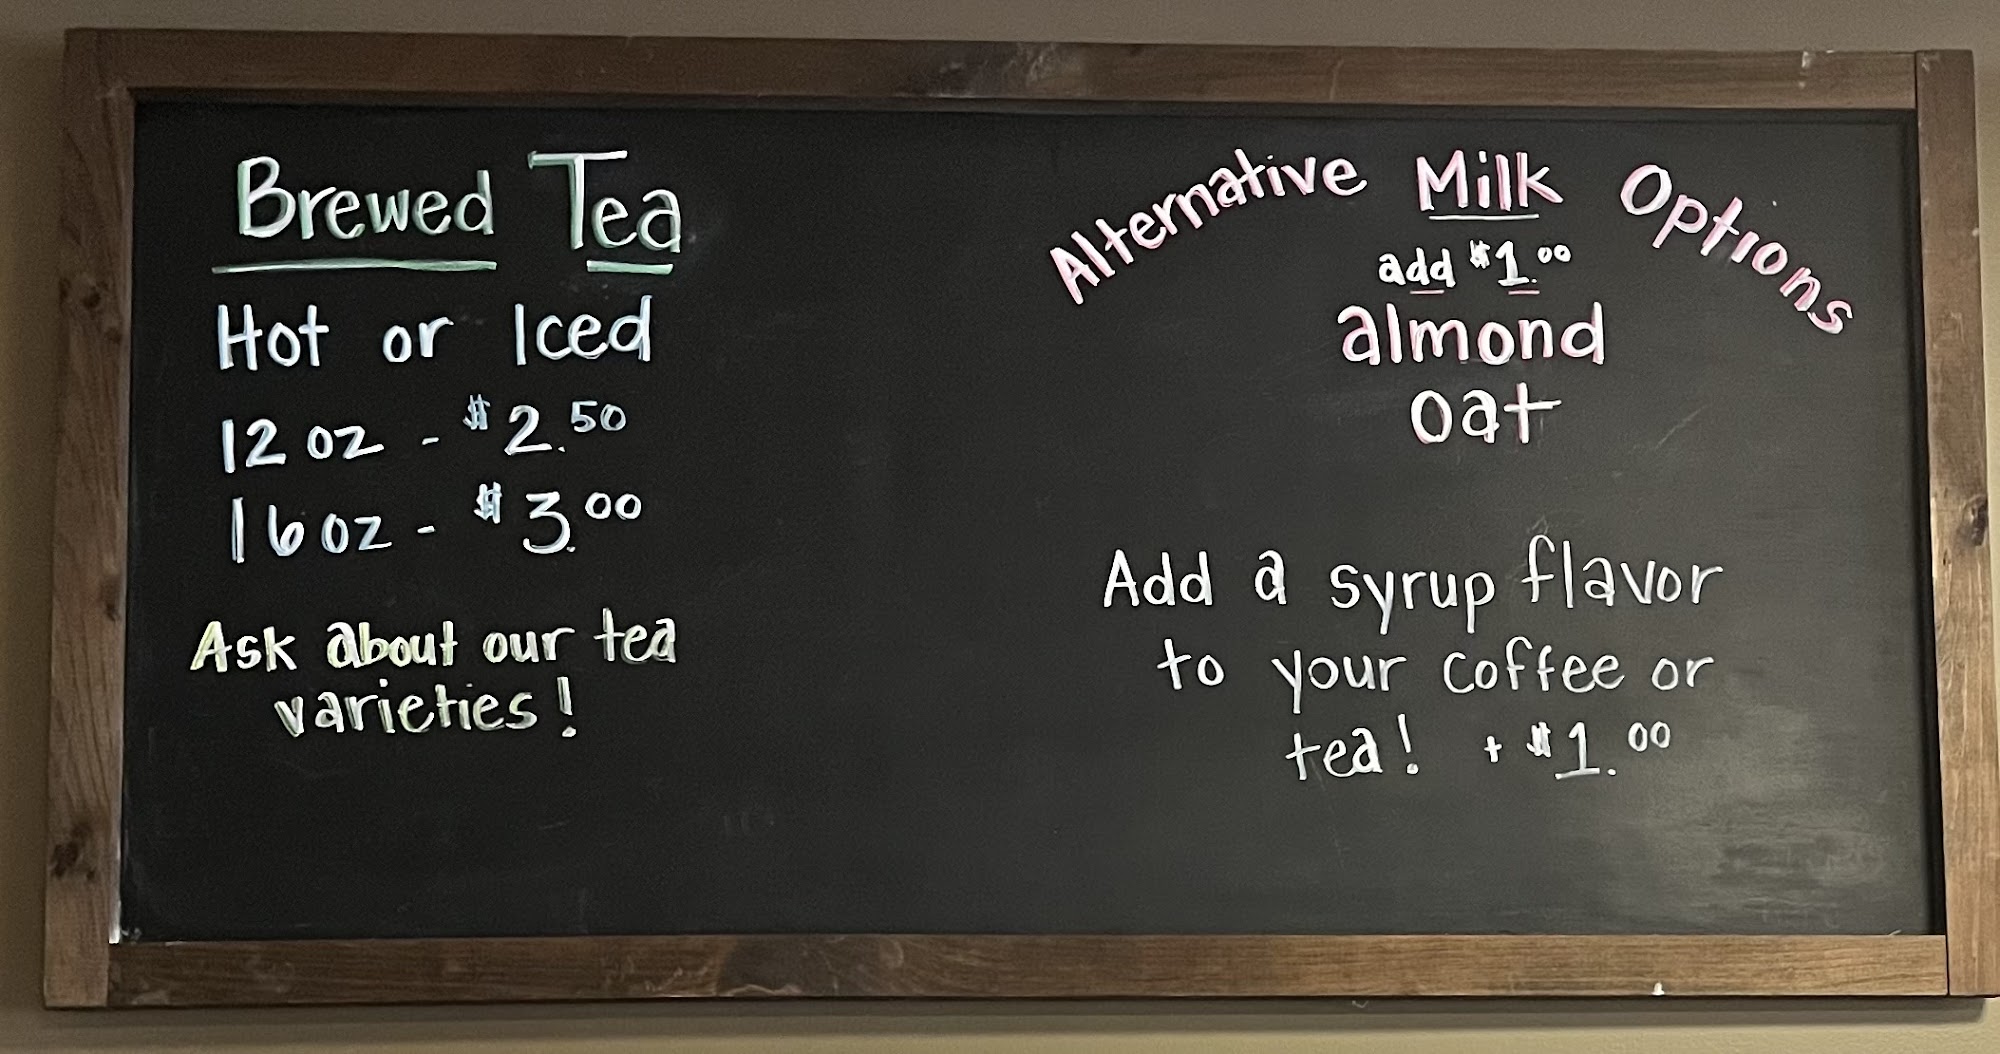 Brewed Tea
Hot or Iced
12 oz - $2.50
16 oz - $3.00
Ask about our tea
varieties!
Alternative Milk Options
add $1.00
almond
oat
Add a syrup flavor
to your coffee or
tea! + $1.00